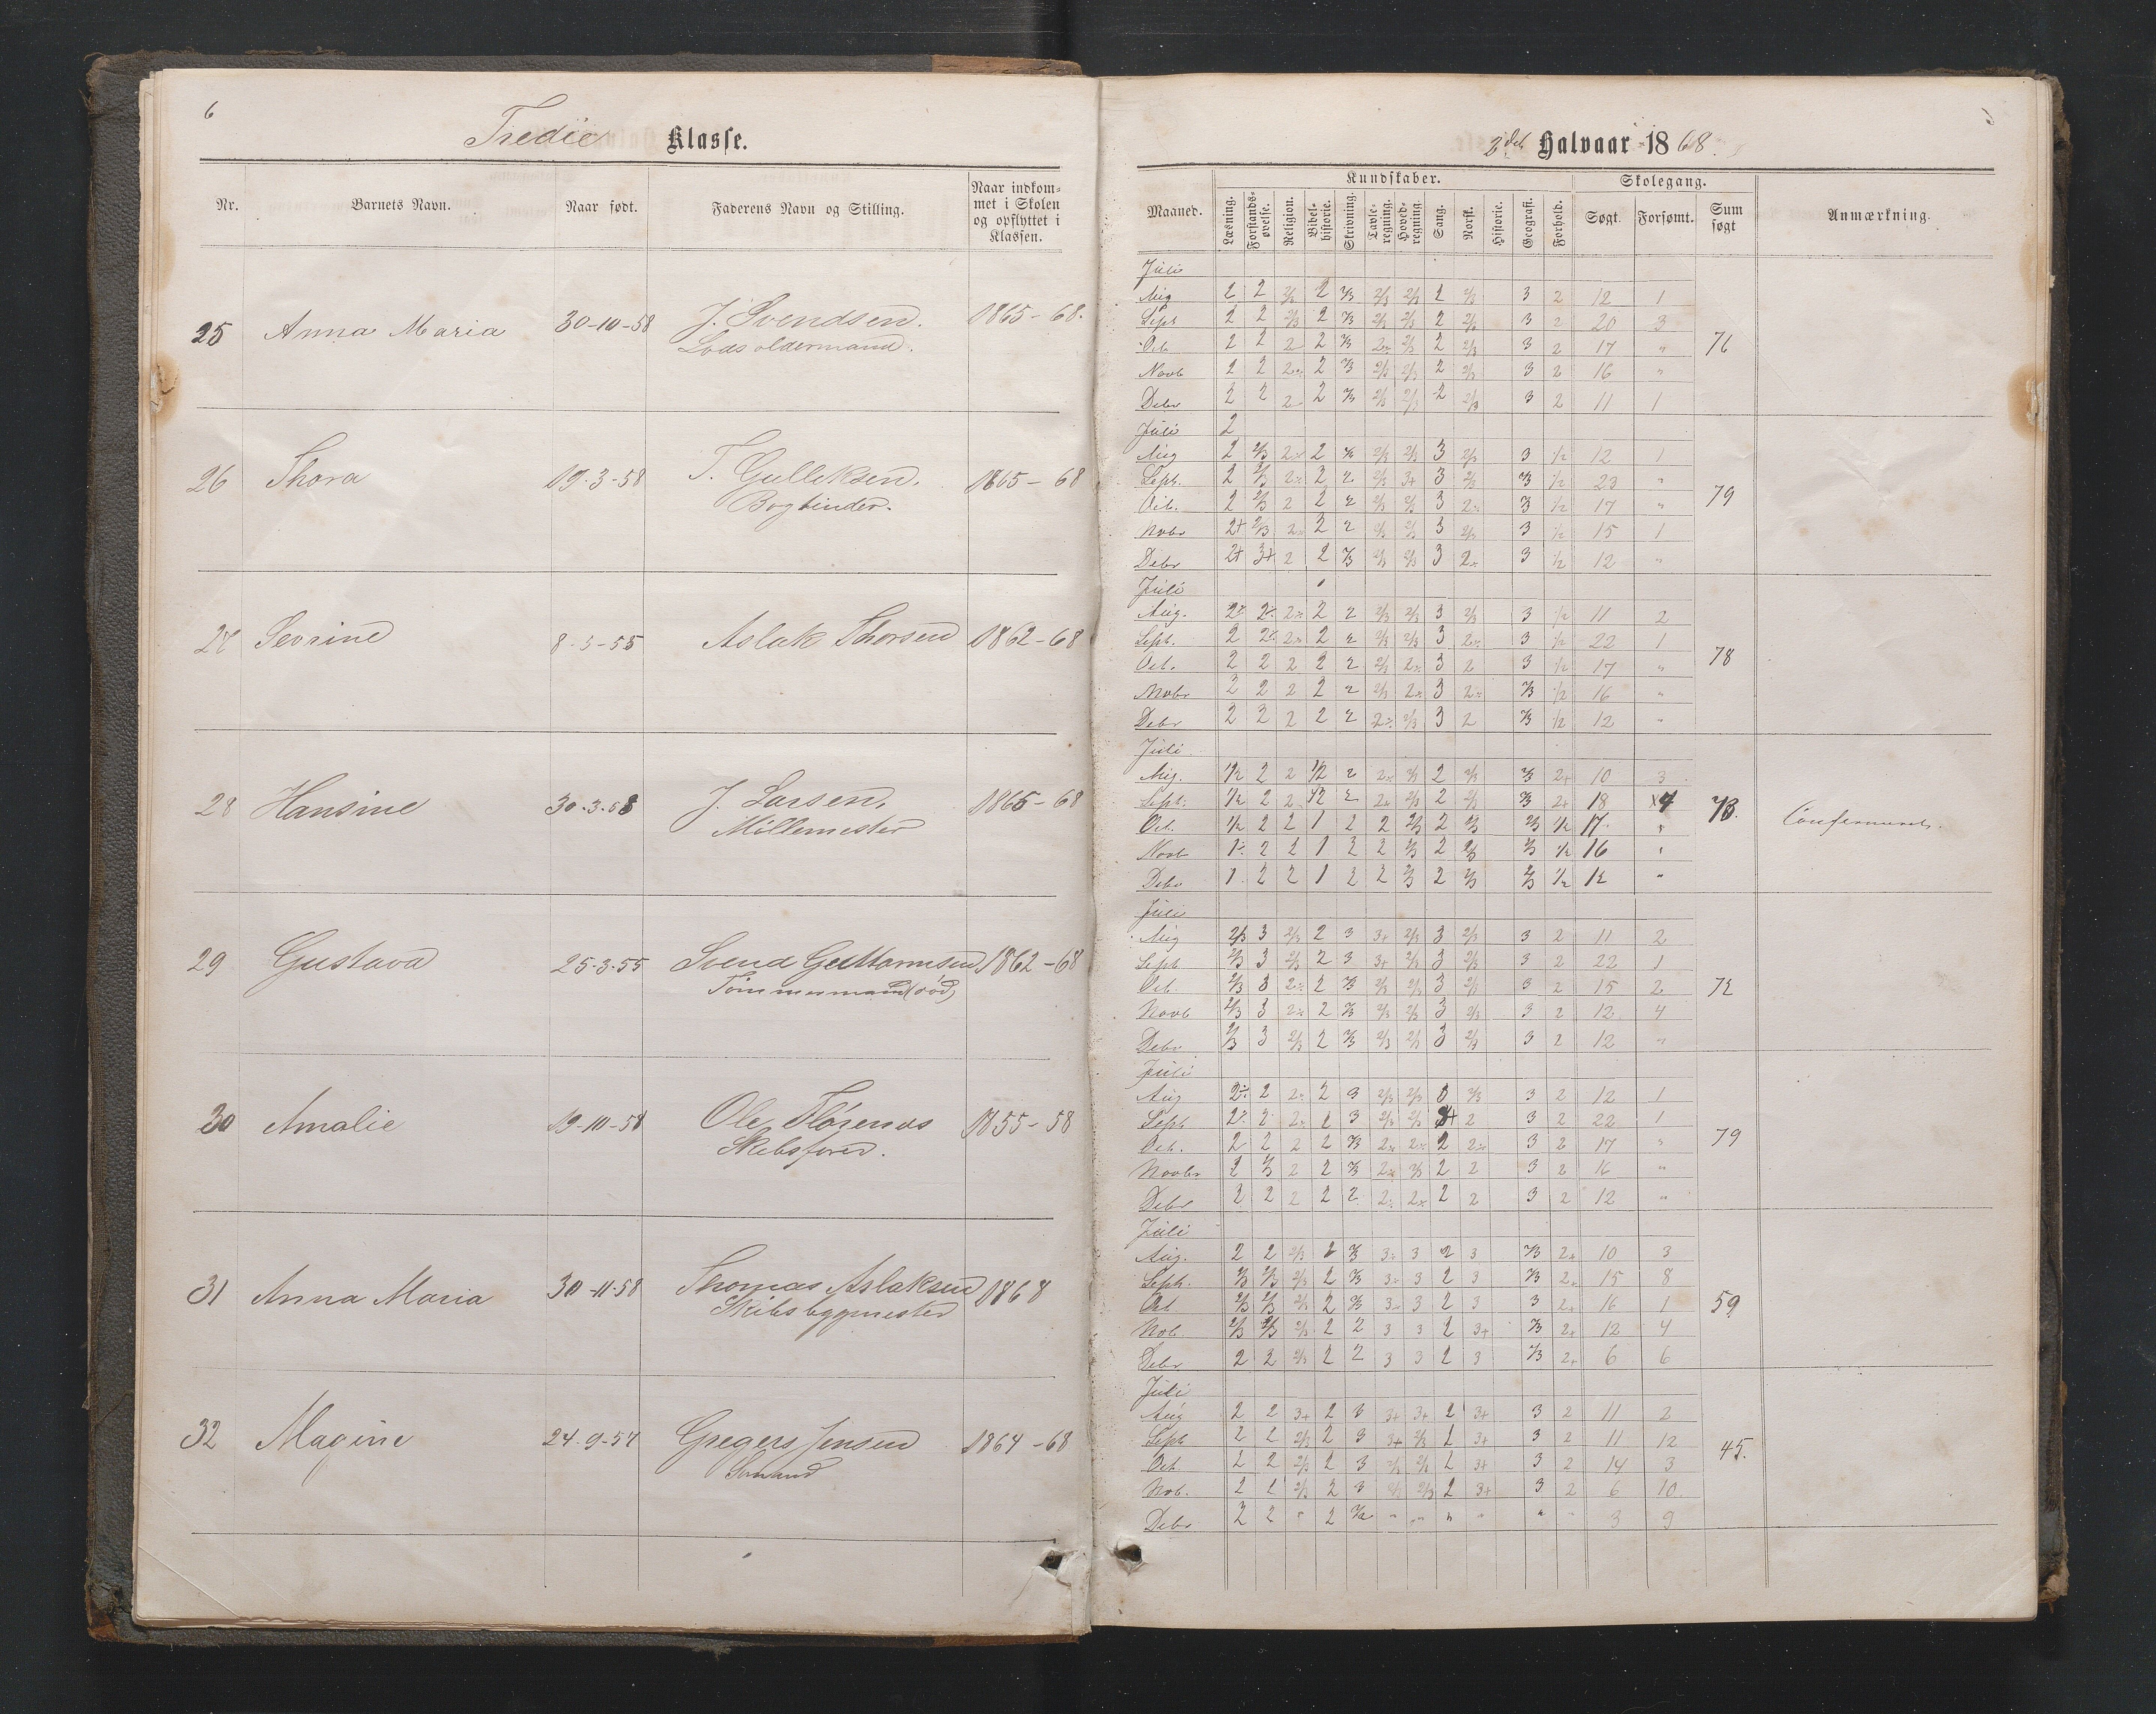 6
Tredie Klasse.
Nr. Barnets Navn. Naar født. Faderens Navn og Stilling. Naar indkom-
met i Skolen
og opflyttet i
Klassen.
25 Anna Maria 30-10-58 J. Svendsen. 1865-68.
Lodsoldermand.
26 Thora 19-3-58 T. Gulleksen. 1865-68
Bogbinder.
27 Sevrine 8-5-55 Aslak Thorsen 1862-68
28 Hansine 30-3-58 J. Larsen, 1865-68
Möllemester
29 Gustava 25-3-55 Svend Guttormsen 1862-68
Tömmermand (död)
30 Amalie 19-10-58 Ole Flörenæs 1855-58
Skibsförer.
31 Anna Maria 30-11-58 Thomas Aslaksen 1868
Skibsbygmester
32 Magine 24-9-57 Gregers Jensen 1864-68
Sömand
2det Halvaar 1868.
Maaned. Kundskaber. Skolegang. Sum søgt Anmærkning.
Læsning. Forstands-øvelse. Religion. Bibel-historie. Skrivning. Tavle-regning. Hoved-regning. Sang. Norsk. Historie. Geografi. Forhold. Søgt. Forsømt.
Juli
Aug 2 2 2/3 2 2/3 2/3 2/3 2 2/3 3 2 12 1
Sept 2 2 2/3 2 2/3 2/3 2/3 2 2/3 3 2 20 3
Oct 2 2 2 2 2/3 2÷ 2/3 2 2/3 3 2 17 " 76
Novb 2 2 2÷ 2 2/3 2/3 2/3 2 2/3 3 2 16 "
Debr 2 2 2÷ 2 2/3 2/3 2/3 2 2/3 3 2 11 1
Juli 2
Aug 2 2/3 2÷ 2 2/3 2/3 3 2/3 3 1/2 12 1
Sept. 2 2/3 2÷ 2 2 2/3 3+ 3 2/3 2/3 1/2 23 "
Oct. 2 2/3 2 2 2 2/3 2/3 3 2÷ 3 1/2 17 " 79
Nobr 2+ 2/3 2÷ 2 2 2/3 2/3 3 2/3 3 1/2 15 1
Debr 2+ 3+ 2 2 2/3 2/3 2/3 3 2÷ 3 1/2 12 "
Juli
Aug. 2÷ 2÷ 2÷ 2 2 2/3 2/3 3 2/3 3 1/2 11 2
Sept. 2 2÷ 2÷ 2 2 2/3 2/3 3 2÷ 3 1/2 22 1
Oct. 2 2 2 2 2 2/3 2÷ 3 2 3 1/2 17 " 78
Nobr 2 2 2 2 2 2/3 2÷ 3 2÷ 2/3 1/2 16 "
Debr 2 2 2 2 2 2÷ 2/3 3 2 2/3 1/2 12 "
Juli
Aug. 1/2 2 2 1/2 2 2÷ 2/3 2 2/3 2/3 2+ 10 3
Sept. 1/2 2 2 1/2 2 2÷ 2/3 2 2/3 2/3 2+ 18 4 73.
Oct. 1/2 2 2 1 2 2 2/3 2 2/3 2/3 1/2 17 "
Novb 1÷ 2 2 1 2 2 2/3 2 2/3 2/3 1/2 16 "
Debr 1 2 2 1 2 2 2/3 2 2/3 2/3 1/2 12 "
Juli
Aug 2/3 3 2/3 2 3 3+ 2/3 3 2/3 3 2 11 2
Sept 2/3 3 2/3 2 3 3+ 2/3 3 2/3 3 2 22 1
Oct. 2/3 3 2÷ 2 2/3 2/3 2/3 3 2/3 3 2 15 2 72
Novb 2/3 3 2÷ 2 2/3 2/3 2/3 3 2/3 3 2 12 4
Debr 2/3 3 2/3 2 2/3 2/3 2/3 3 2/3 3 2 12 "
Juli
Aug 2÷ 2 2÷ 2 3 2/3 2/3 3 2/3 3 2 12 1
Sept 2÷ 2 2÷ 2 3 2/3 2/3 2 3 2 22 1
Oct. 2 2 2 2 2/3 2÷ 2÷ 2 2÷ 3 2 17 " 79
Novbr 2 2/3 2 2 2/3 2÷ 2/3 2 2 3 2 16 "
Debr 2 2 2 2 2 2÷ 2÷ 2 2 3 2 12 "
Juli
Aug. 2 2 2/3 2 2/3 3÷ 3 2 3 2/3 2+ 10 3
Sept. 2/3 2/3 2/3 2 2/3 3÷ 3 2 3 2/3 2÷ 15 8
Oct 2/3 2/3 2/3 2 2/3 3÷ 3 2 3 3 2+ 16 1 59
Nob. 2/3 2/3 2/3 2 2 3 3 2 3+ 2/3 2+ 12 4
Debr 2 2 2/3 2 2 3 3 2 3 2/3 2+ 6 6
Juli
Aug 2 2 3+ 2 3 3+ 3+ 2 3+ 3 2 11 2
Sept 2 2 2/3 2 3 3+ 2/3 2 3+ 3 2 11 12
Oct 2 2 2/3 2 3 2/3 2/3 2 3+ 3 2 14 3 45.
Nob. 2 2 2/3 2 3 2/3 2/3 2 3+ 3 2 6 10
Debr 2 2 " 2 " " " " " " 3 9